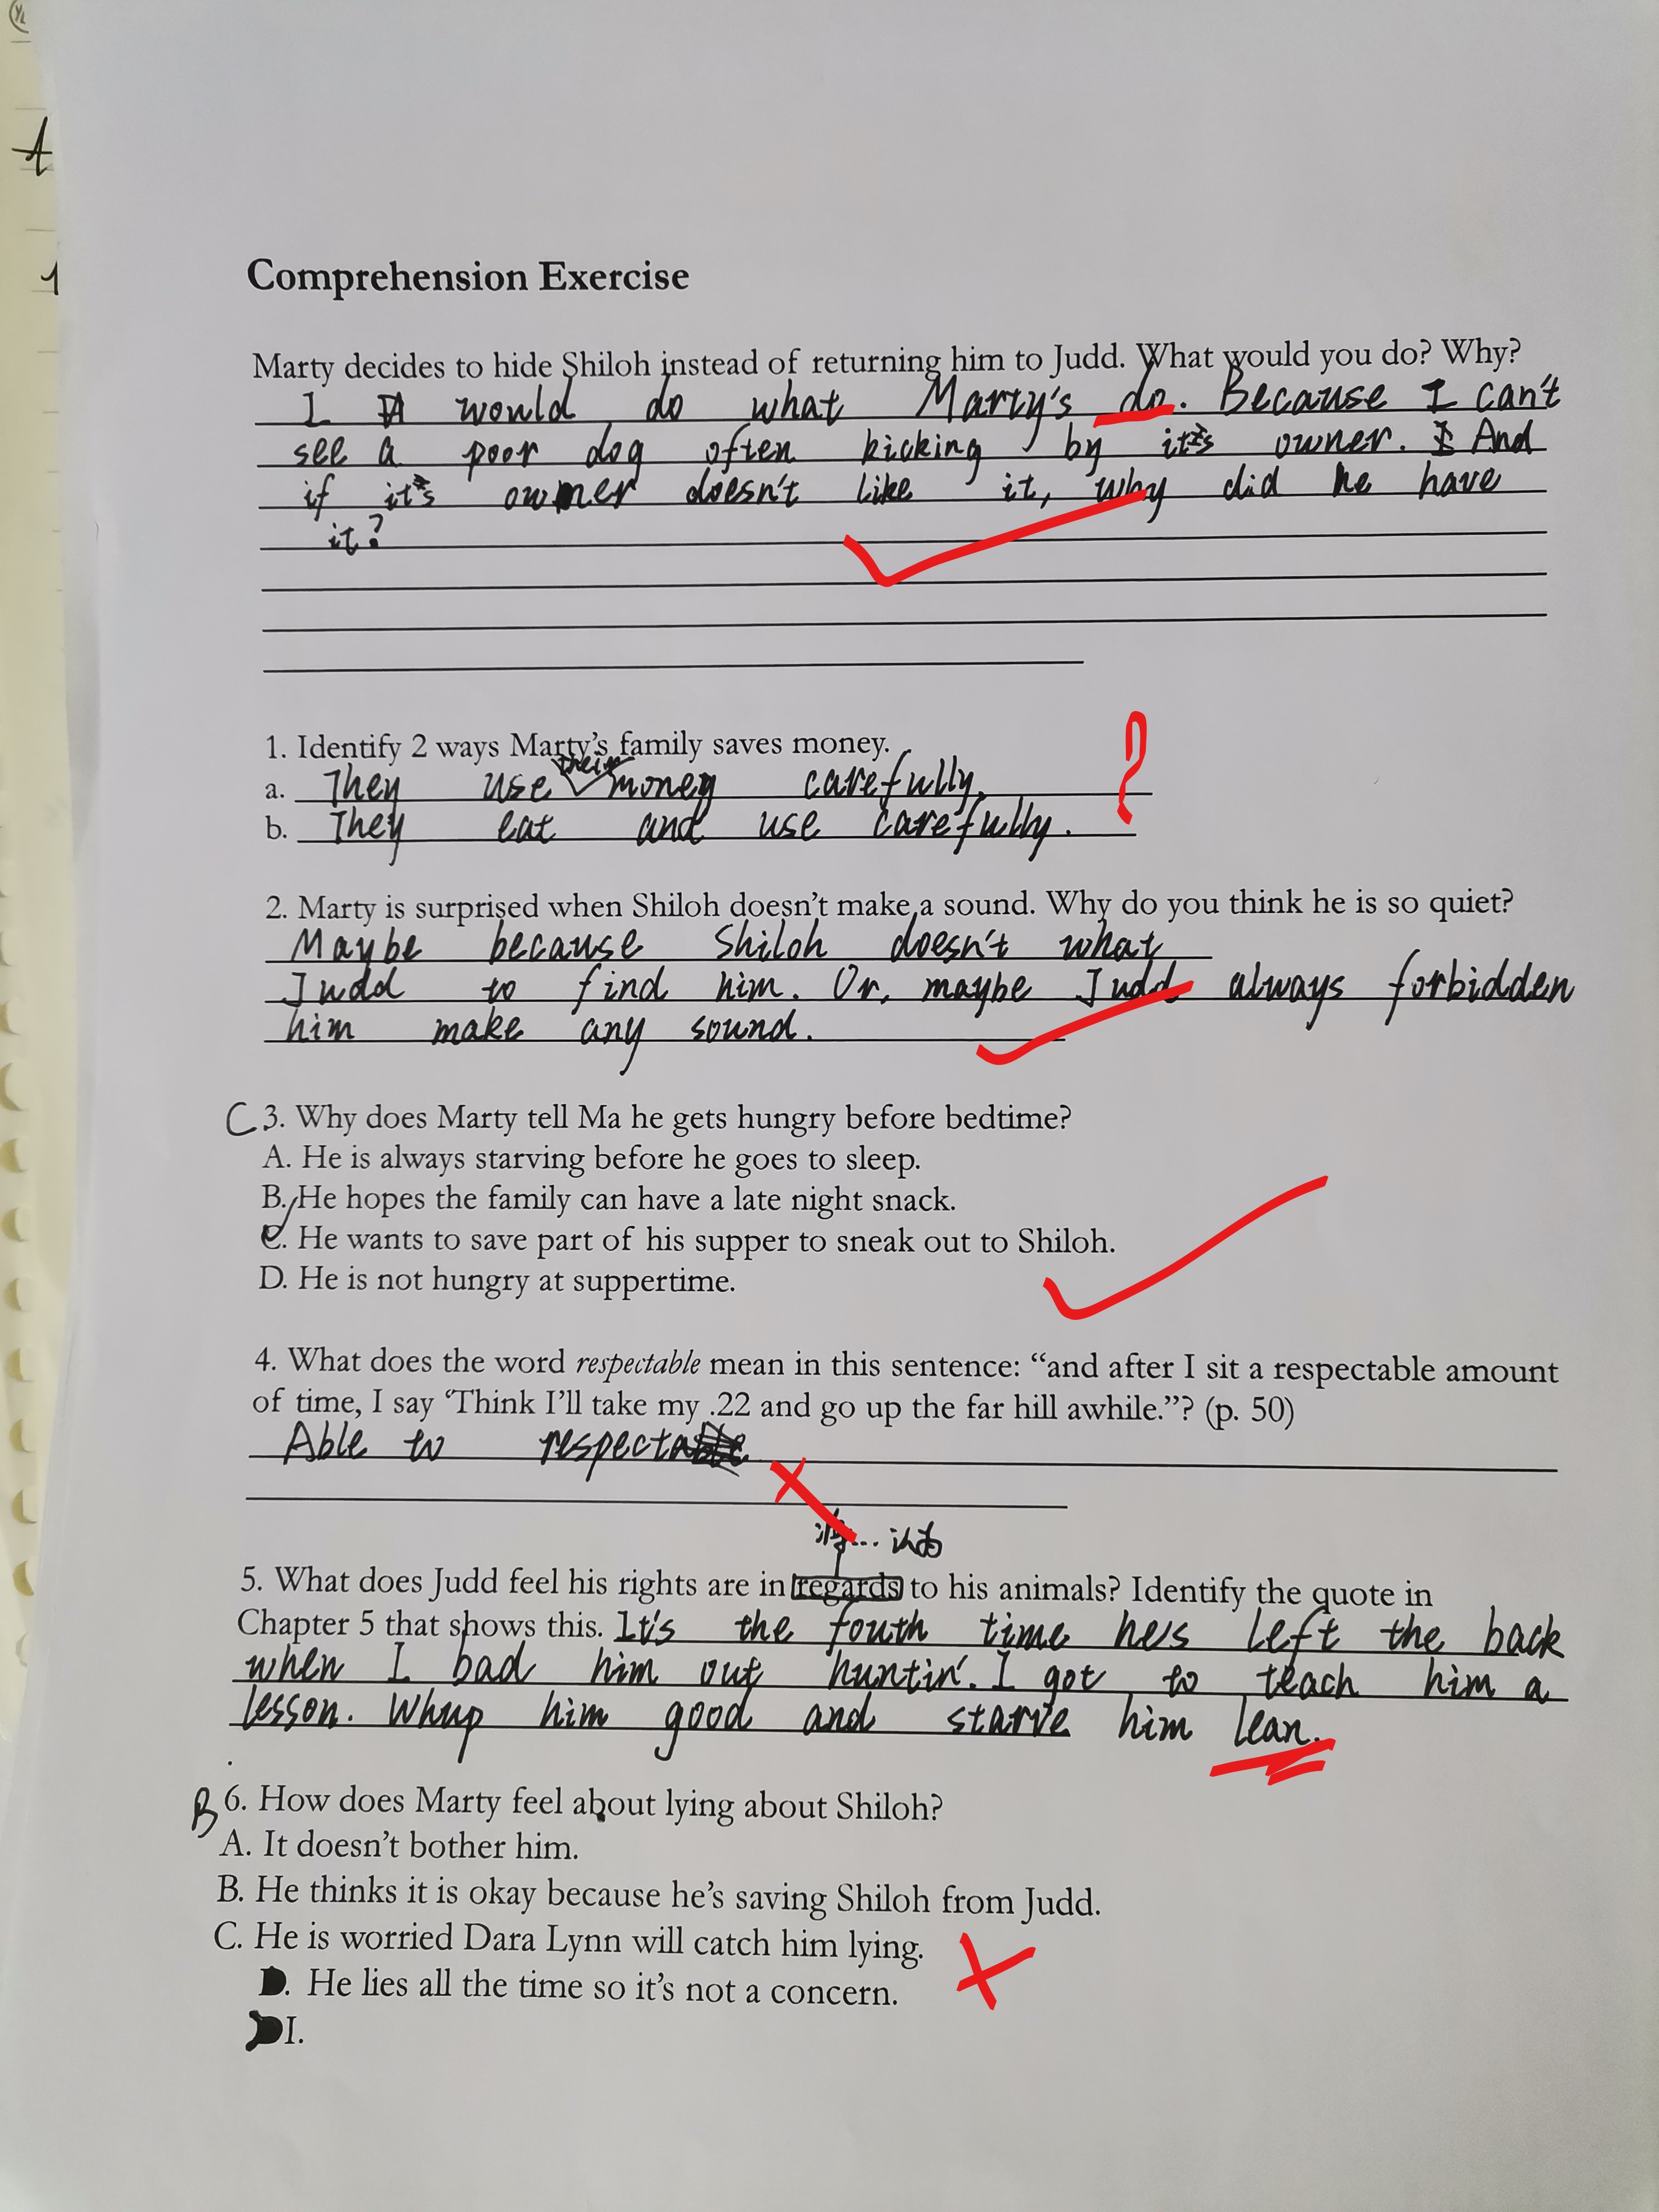 Comprehension Exercise
Marty decides to hide Shiloh instead of returning him to Judd. What would you do? Why?
I would do what Marty's do. Because I can't
see a poor dog often kicking by it's owner. And
if it's owner doesn't like it, why did he have
it?
1. Identify 2 ways Marty's family saves money.
their
a. They use money carefully.
b. They eat and use carefully.
2. Marty is surprised when Shiloh doesn't make a sound. Why do you think he is so quiet?
Maybe because Shiloh doesn't what
Judd to find him. Or, maybe Judd always forbidden
him make any sound.
C 3. Why does Marty tell Ma he gets hungry before bedtime?
A. He is always starving before he goes to sleep.
B. He hopes the family can have a late night snack.
C. He wants to save part of his supper to sneak out to Shiloh.
D. He is not hungry at suppertime.
4. What does the word respectable mean in this sentence: “and after I sit a respectable amount
of time, I say ‘Think I’ll take my .22 and go up the far hill awhile.”? (p. 50)
Able to respect
将... 认为
5. What does Judd feel his rights are in regards to his animals? Identify the quote in
Chapter 5 that shows this. It's the fouth time he's left the back
when I bad him out huntin'. I got to teach him a
lesson. Whup him good and starve him lean.
B 6. How does Marty feel about lying about Shiloh?
A. It doesn't bother him.
B. He thinks it is okay because he's saving Shiloh from Judd.
C. He is worried Dara Lynn will catch him lying.
D. He lies all the time so it's not a concern.
I.